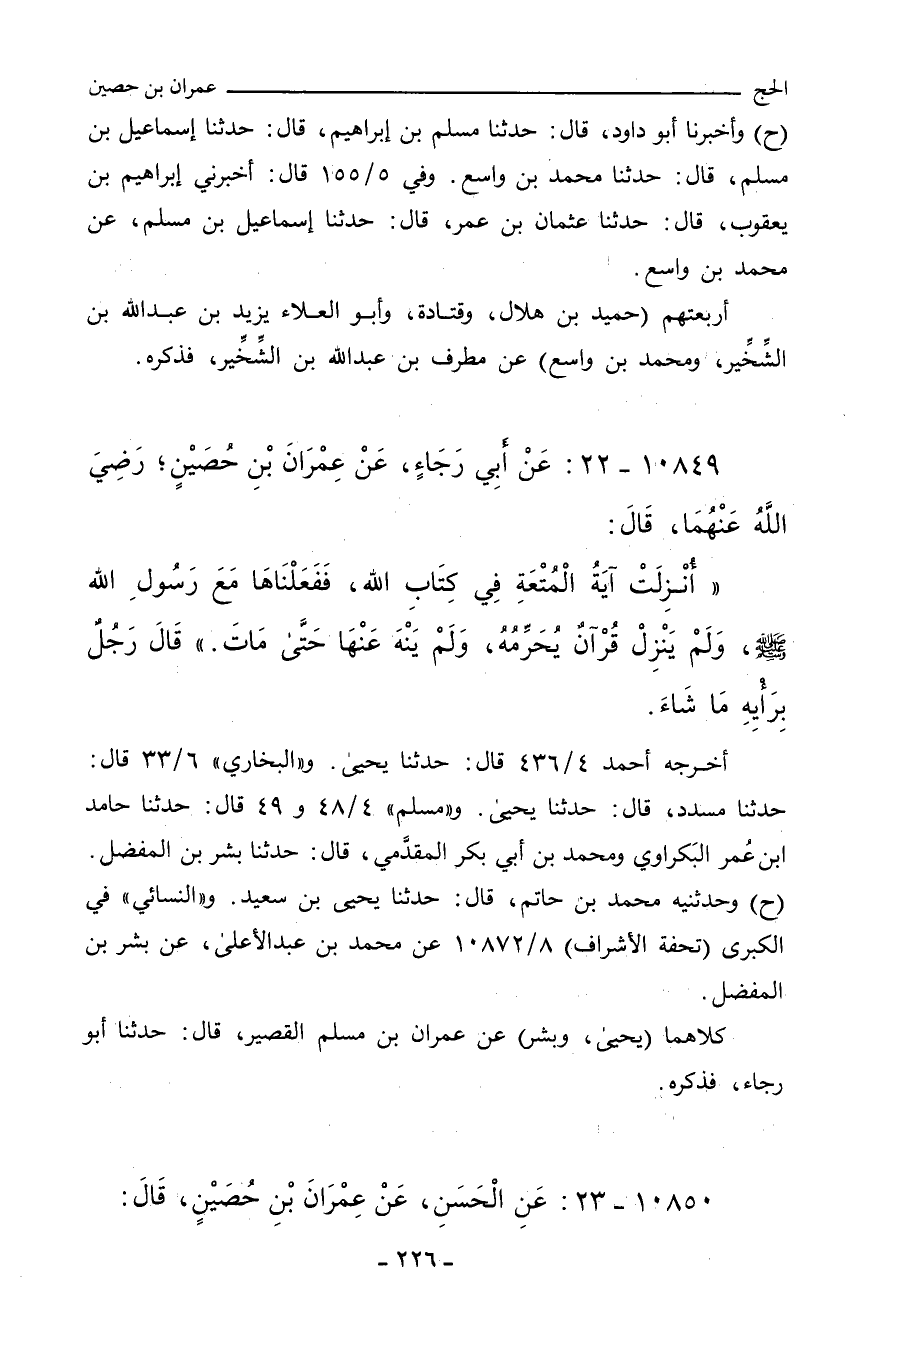 الحج ــــــــــــــــــــ عمران بن حصين
(ح) وأخبرنا أبو داود، قال: حدثنا مسلم بن إبراهيم، قال: حدثنا إسماعيل بن
مسلم، قال: حدثنا محمد بن واسع. وفي ١٥٥/٥ قال: أخبرني إبراهيم بن
يعقوب، قال: حدثنا عثمان بن عمر، قال: حدثنا إسماعيل بن مسلم، عن
محمد بن واسع.
أربعتهم (حميد بن هلال، وقتـادة، وأبـو العـلاء يزيد بن عبـدالله بن
الشِّخِّير، ومحمد بن واسع) عن مطرف بن عبدالله بن الشِّخِّير، فذكره.
١٠٨٤٩ - ٢٢: عَنْ أَبِي رَجَاءٍ، عَنْ عِمْرَانَ بْنِ حُصَيْنٍ؛ رَضِيَ
اللَّهُ عَنْهُمَا، قَالَ:
« أُنْـزِلَتْ آيَةُ الْمُتْعَةِ فِي كِتَابِ الله، فَفَعَلْنَاهَا مَعَ رَسُولِ الله
ﷺ، وَلَمْ يَنْزِلْ قُرْآنٌ يُحَرِّمُهُ، وَلَمْ يَنْهَ عَنْهَا حَتَّىٰ مَاتَ.» قَالَ رَجُلٌ
بِرَأْيِهِ مَا شَاءَ.
أخـرجه أحمد ٤٣٦/٤ قال: حدثنا يحيىٰ. و«البخاري» ٣٣/٦ قال:
حدثنا مسدد، قال: حدثنا يحيىٰ. و«مسلم» ٤٨/٤ و ٤٩ قال: حدثنا حامد
ابن عُمر البَكراوي ومحمد بن أبي بكر المقدَّمي، قال: حدثنا بشر بن المفضل.
(ح) وحدثنيه محمد بن حاتم، قال: حدثنا يحيى بن سعيد. و«النسائي» في
الكبرى (تحفة الأشراف) ١٠٨٧٢/٨ عن محمد بن عبدالأعلىٰ، عن بشر بن
المفضل.
كلاهما (يحيىٰ، وبشر) عن عمران بن مسلم القصير، قال: حدثنا أبو
رجاء، فذكره.
١٠٨٥٠ - ٢٣: عَنِ الْحَسَنِ، عَنْ عِمْرَانَ بْنِ حُصَيْنٍ، قَالَ:
- ٢٢٦ -